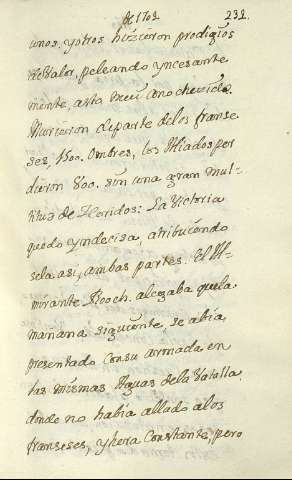 de 1702 232.
unos, y otros hizieron prodigios
de Valor, peleando yncesante
mente, asta mui anochecido.
Murieron de parte de los franse
ses, 1500. Ombres, los Aliados per
dieron 800. sin una gran mul-
titud de Heridos: La Victoria
quedo yndecisa, atribuiendo
sela asi, ambas partes. El Al-
mirante Rooch. alegaba que la
mañana siguiente, se abia
presentado con su armada en
las mismas Aguas de la Vatalla,
donde no habia allado a los
franseses, y hera Constante, pero